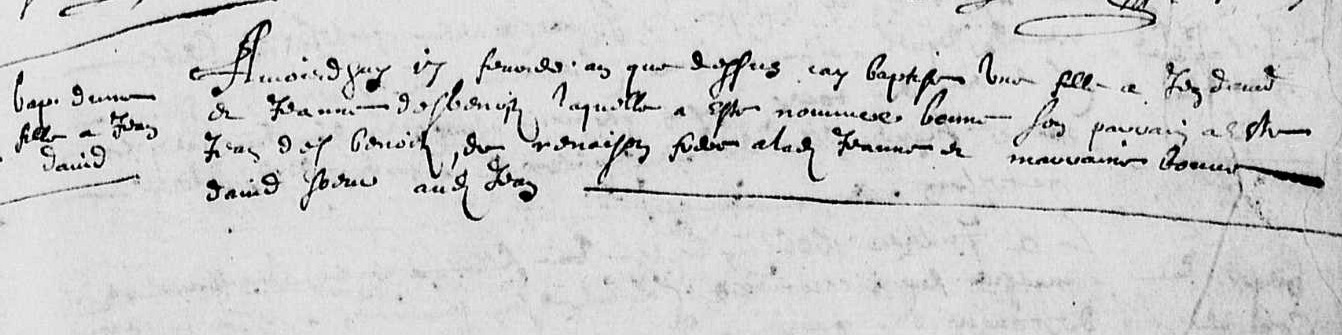 bap. dune
fille a Jean
david
Amoirdhuy 17 fevrier an que dessus jay baptise Une fille a Jean david
et Jeanne desbenoit laquelle a este nommee bonne son parrain a este
Jean des benoit de renaison frere a lad Jeanne et marraine bonne
david soeur aud Jean